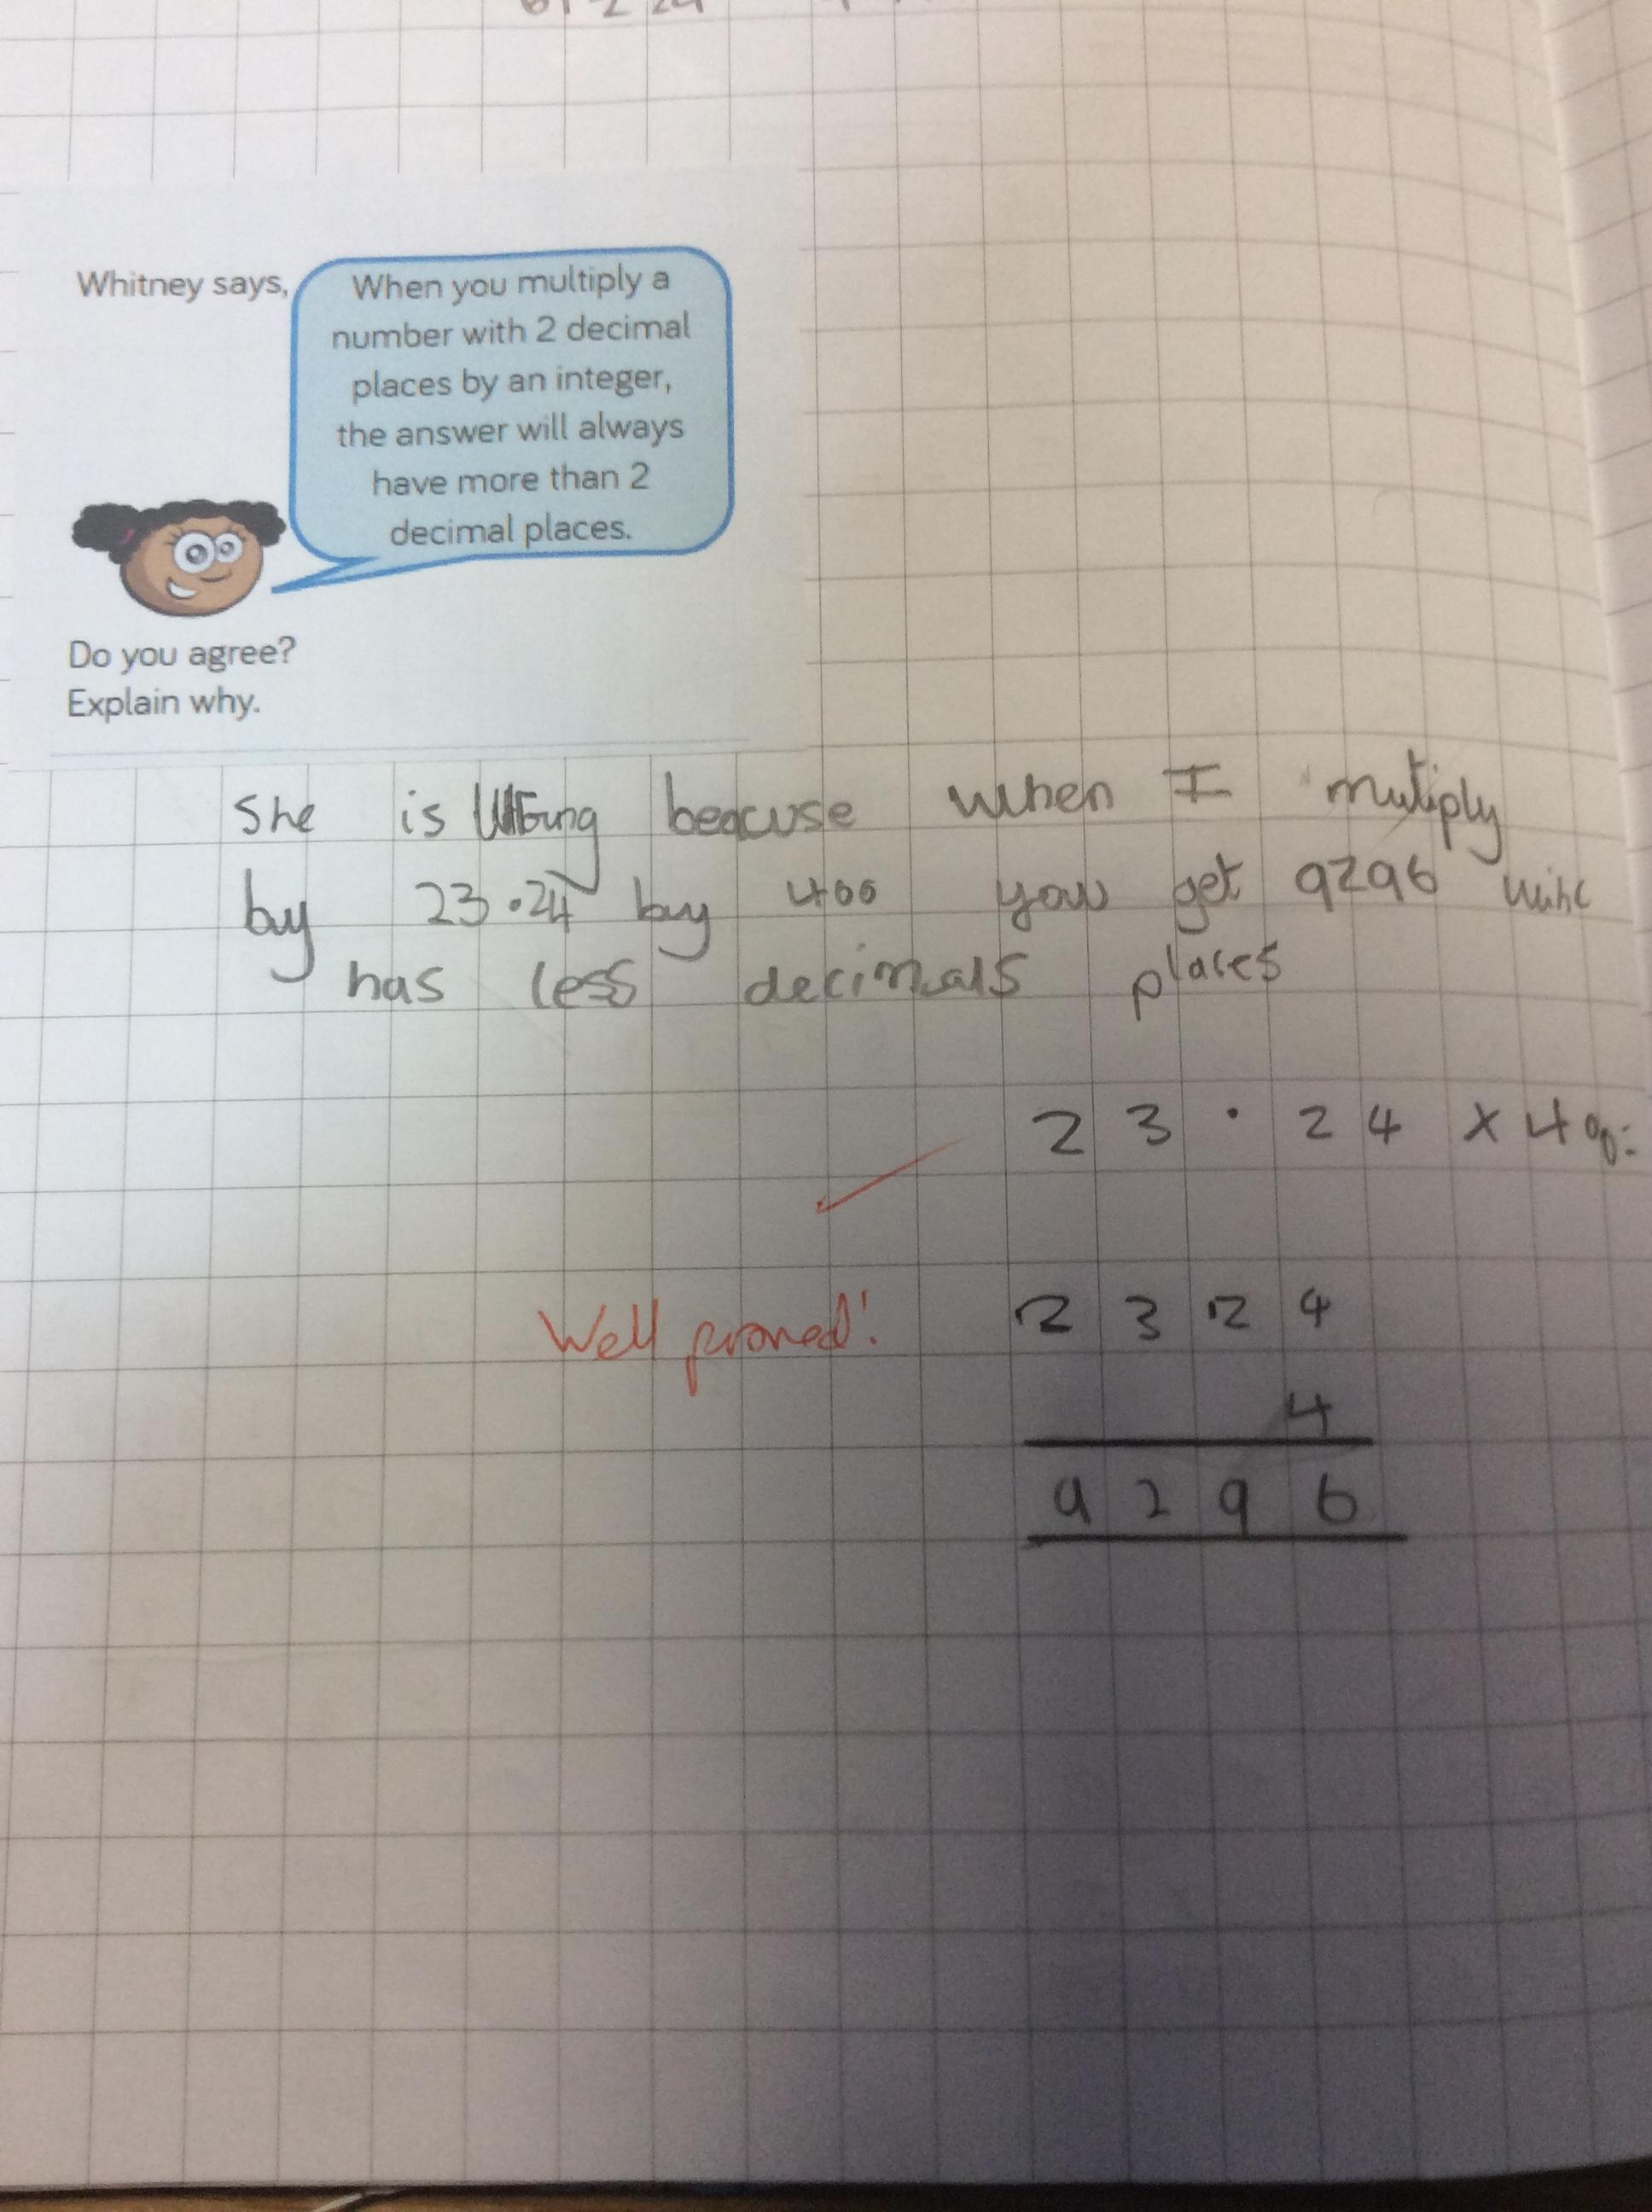 Whitney says,
When you multiply a
number with 2 decimal
places by an integer,
the answer will always
have more than 2
decimal places.
Do you agree?
Explain why.
She is beacuse when I mutiply
by 23.24 by 400 you get 9296
has less decimals places
23.24 x 400=
Well proved!
2324
4
9296